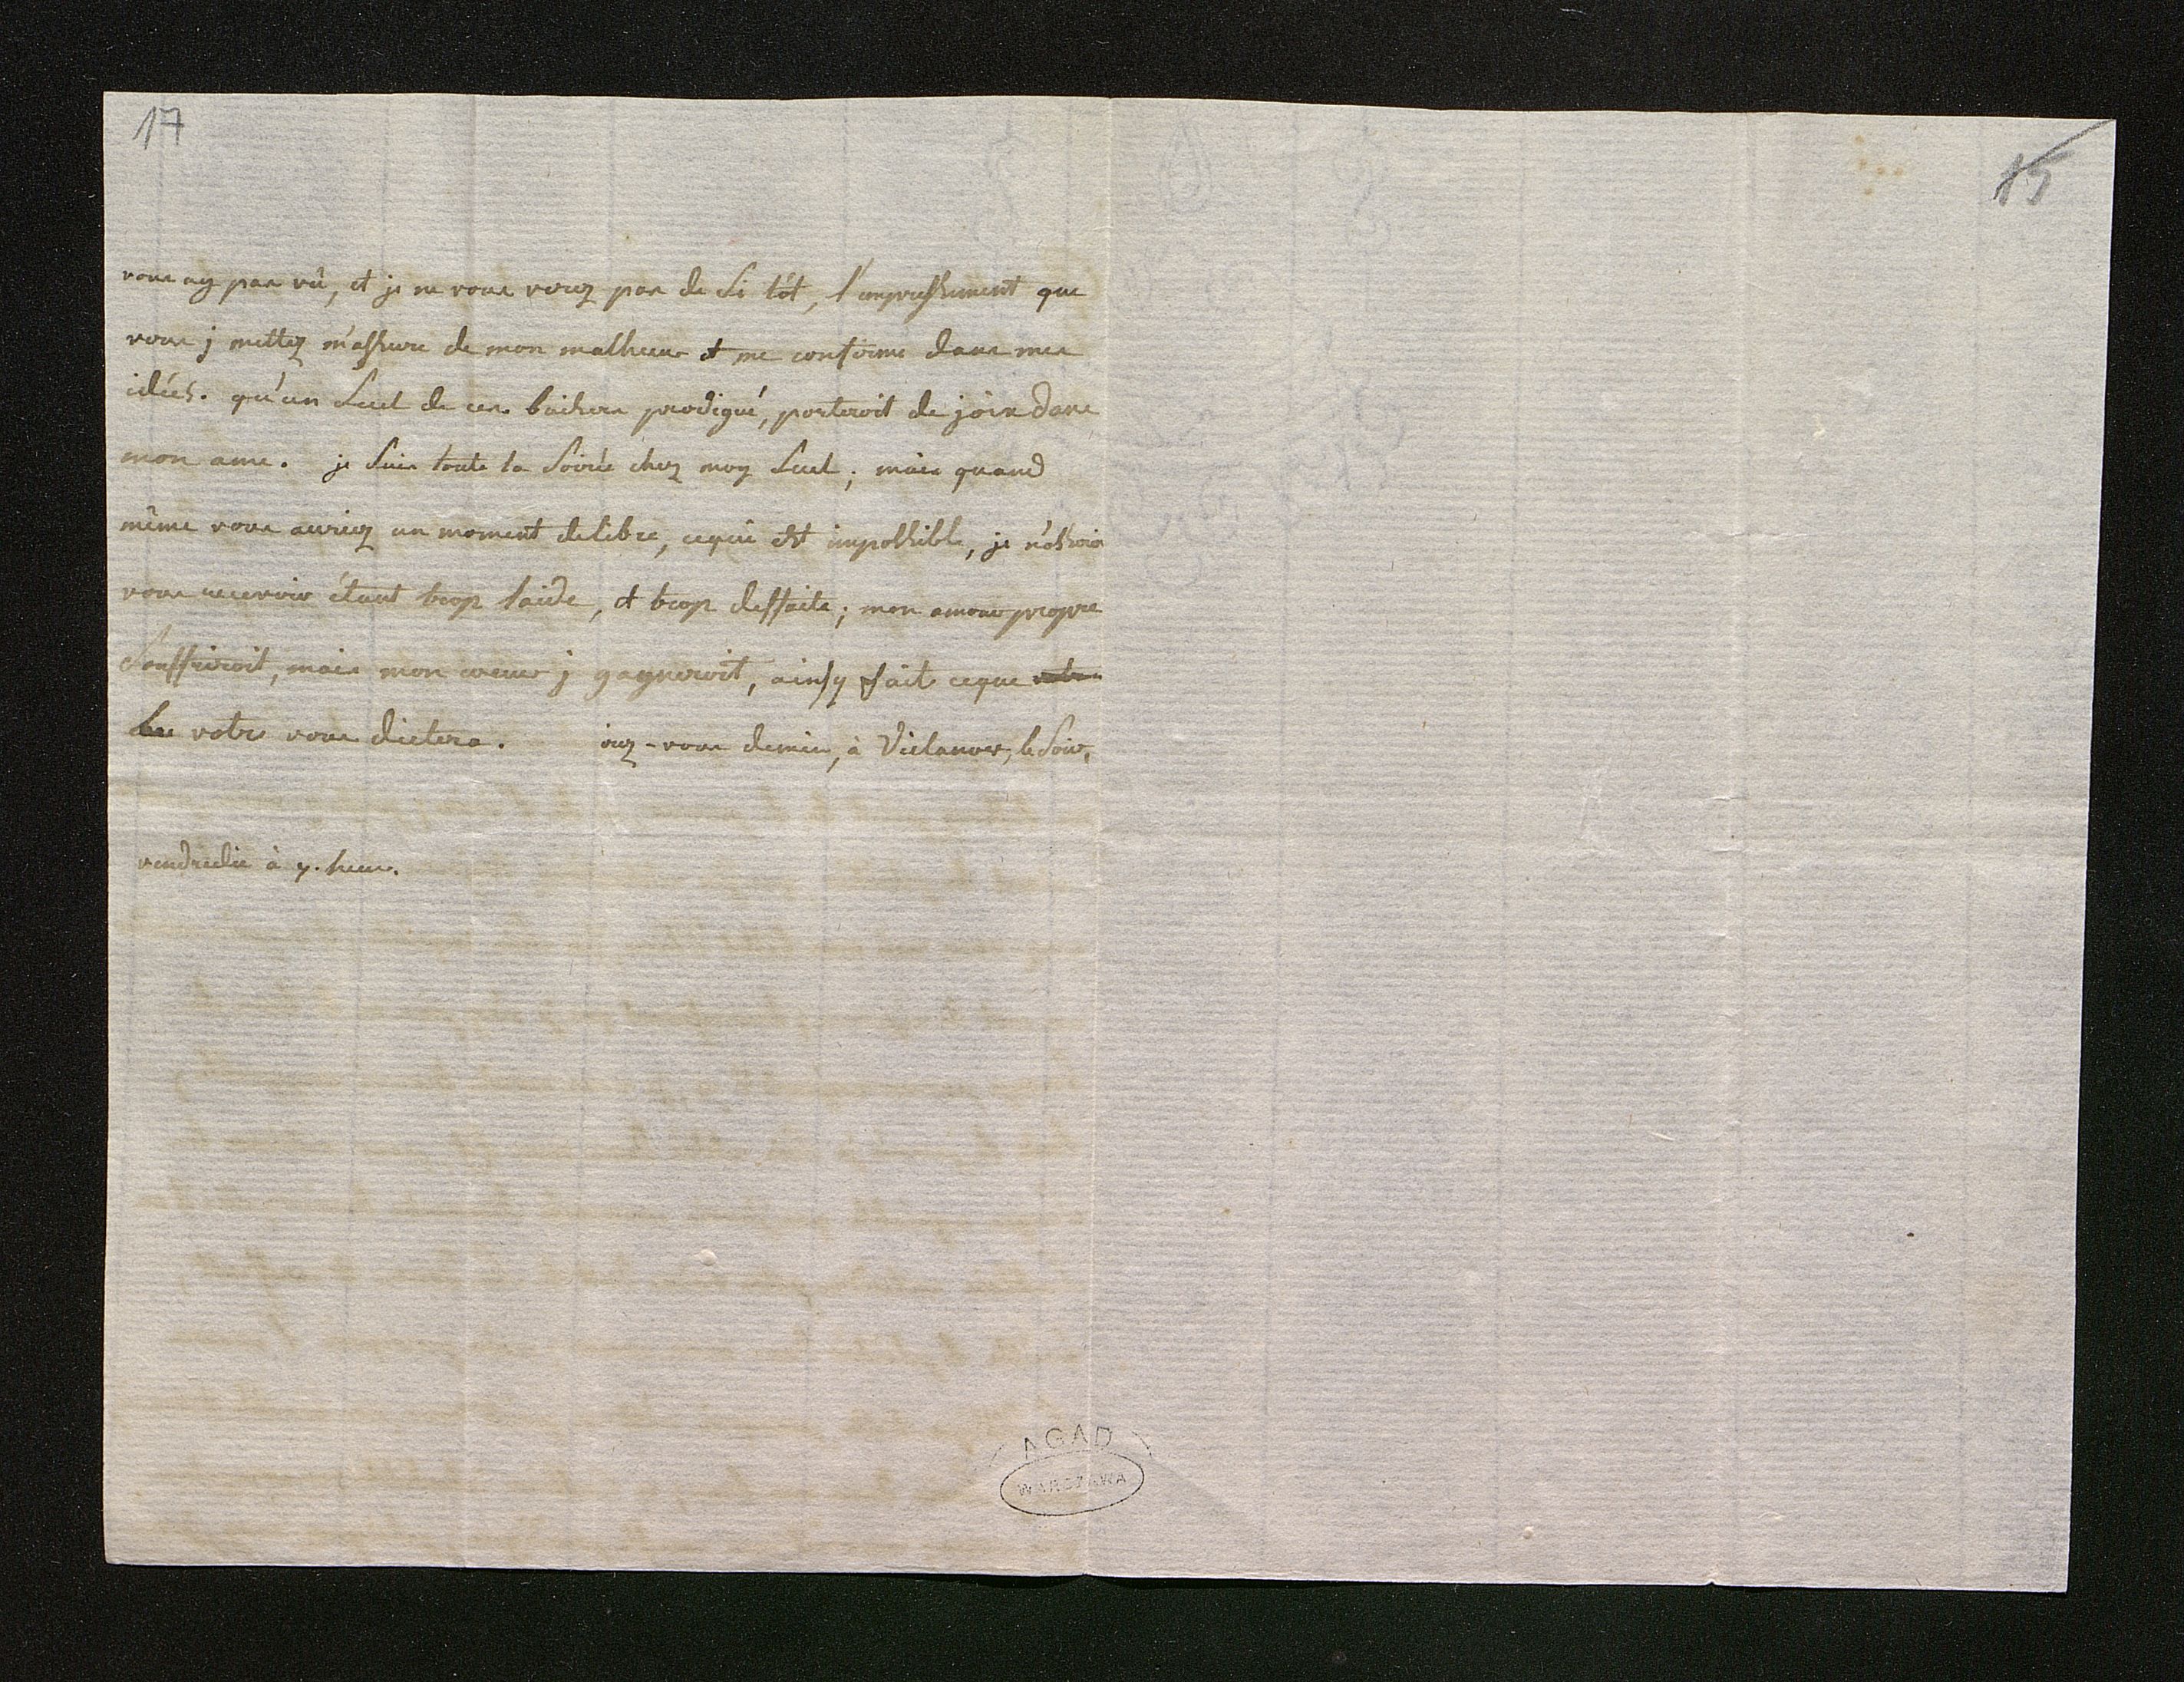 17
15
vous ay pas vû, et je ne vous verez pas de si tôt, l'empressement que
vous j mettez m'assure de mon malheur et me confirme dans mes
idées. qu'un seul de ces baisers prodigué, porteroit de joix dans
mon ame. je suis toute la soirée chez moy seul; mais quand
même vous auriez un moment de libre, cequi est impossible, je n'oserois
vous recevoir étant trop laide, et trop deffaite; mon amour propre
souffriroit, mais mon coeur j gagneroit, ainsy fait ceque
le votre vous dictera. irez-vous demin, à Vielanow, le soir,
vendredie à 7. heur.
AGAD
WARSZAWA